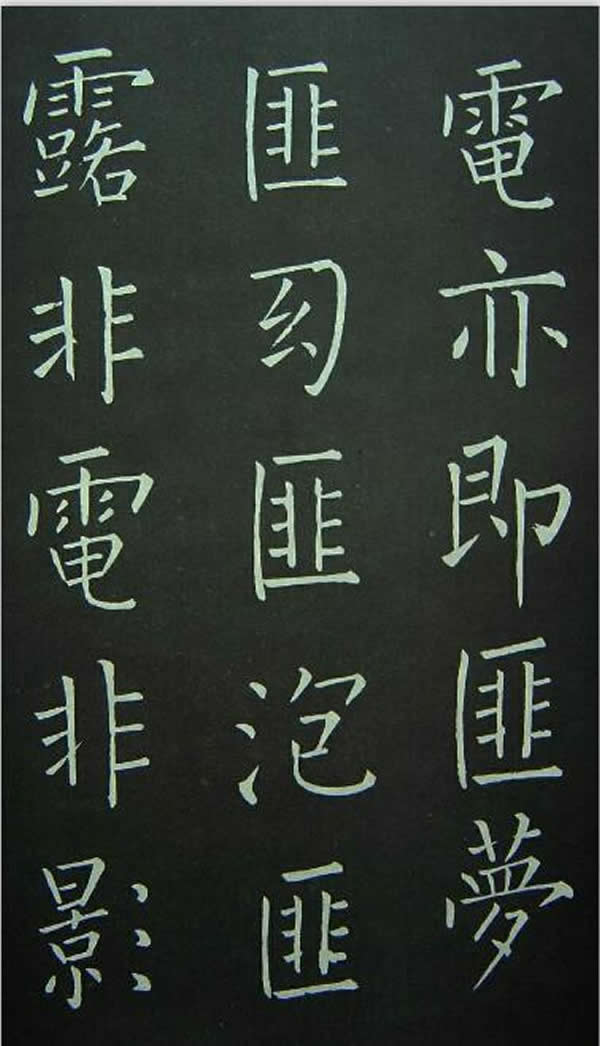 電亦即匪夢
匪幻匪泡匪
露非電非影